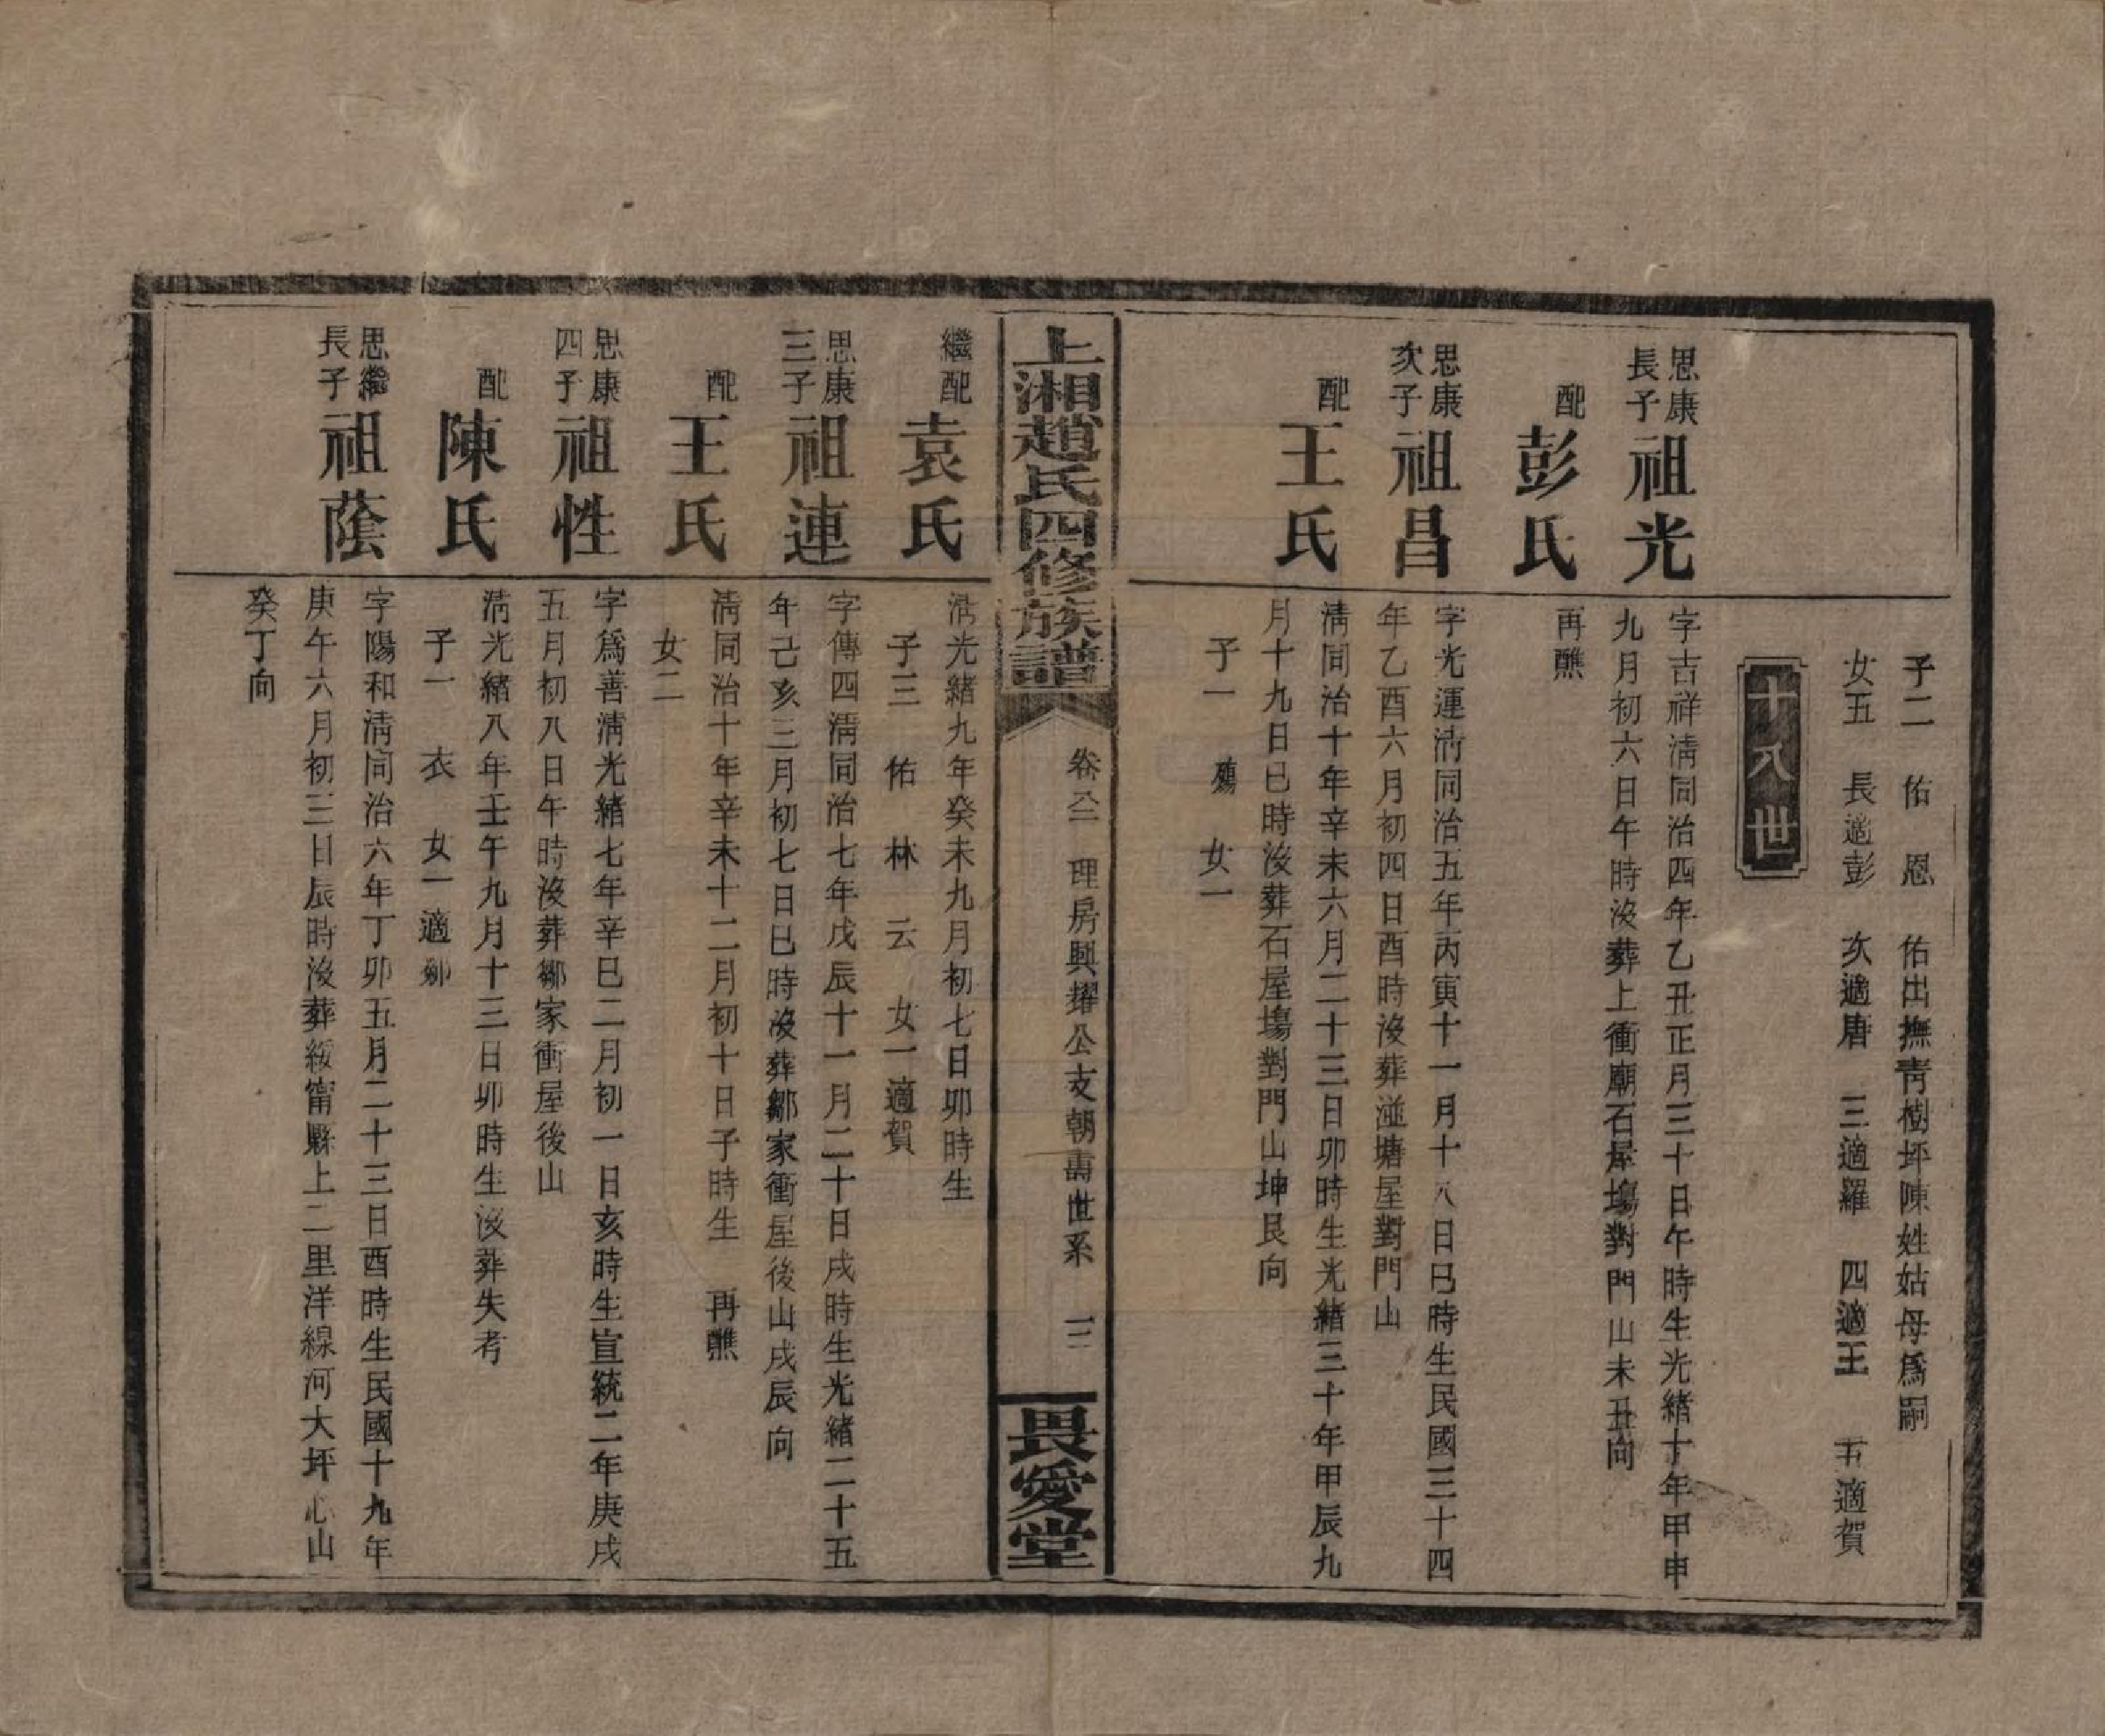 子二　佑　恩　佑出撫靑樹坪陳姓姑母爲嗣
女五　長適彭　次適唐　三適羅　四適王　五適賀
十八世
思康
長子
祖光
字吉祥淸同治四年乙丑正月三十日午時生光緒十年甲申
九月初六日午時沒葬上衝廟石屋塲對門山未丑向
配
彭氏
再醮
思康
次子
祖昌
字光運淸同治五年丙寅十一月十八日巳時生民國三十四
年乙酉六月初四日酉時沒葬湴塘屋對門山
配
王氏
淸同治十年辛未六月二十三日卯時生光緒三十年甲辰九
月十九日巳時沒葬石屋塲對門山坤艮向
子一　殤　女一
上湘趙氏四修族譜
卷 理房興耀公支朝壽世系　三
畏愛堂
繼配
袁氏
淸光緒九年癸未九月初七日卯時生
子三　佑　林　云　女一適賀
思康
三子
祖連
字傳四淸同治七年戊辰十一月二十日戌時生光緒二十五
年己亥三月初七日巳時沒葬鄒家衝屋後山戌辰向
配
王氏
淸同治十年辛未十二月初十日子時生　再醮
女二
思康
四子
祖性
字爲善淸光緒七年辛巳二月初一日亥時生宣統二年庚戌
五月初八日午時沒葬鄒家衝屋後山
配
陳氏
淸光緒八年壬午九月十三日卯時生沒葬失考
子一　衣　女一適鄒
思繼
長子
祖蔭
字陽和淸同治六年丁卯五月二十三日酉時生民國十九年
庚午六月初三日辰時沒葬綏甯縣上二里洋線河大坪心山
癸丁向